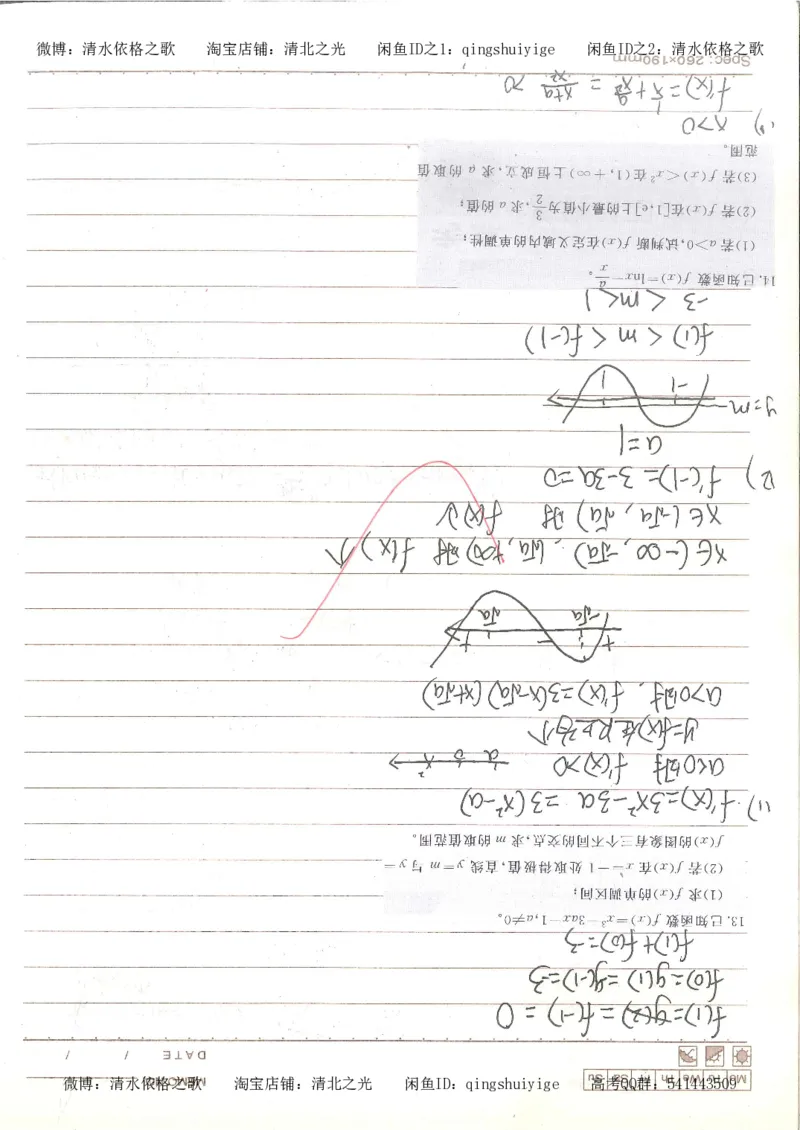 微博：清水依格之歌 淘宝店铺：清北之光 闲鱼ID：qingshuiyige 高考QQ群：541443509
Mo Tu We Th Fr Sa Su
DATE / /
f(1)=g(2)=f(-1)=0
f(0)=g(1)=g(-1)=-3
f(1)+f(0)=-3
13. 已知函数 f(x)=x³-3ax-1,a≠0。
(1)求 f(x)的单调区间;
(2)若 f(x)在 x=-1 处取得极值,直线 y=m 与 y=
f(x)的图象有三个不同的交点,求 m 的取值范围。
(1) f'(x)=3x²-3a=3(x²-a)
a<0时 f'(x)>0
y=f(x)在R上为↑
a>0时, f'(x)=3(x-√a)(x+√a)
+ -√a - √a +
x∈(-∞,-√a),(√a,+∞)时 f(x)↑
x∈(-√a,√a)时 f(x)↓
(2) f'(-1)=3-3a=0
a=1
y=m -1 1
f(1)<m<f(-1)
-3<m<1
14. 已知函数 f(x)=lnx-a/x。
(1)若 a>0,试判断 f(x)在定义域内的单调性;
(2)若 f(x)在[1,e]上的最小值为3/2,求 a 的值;
(3)若 f(x)<x²在(1,+∞)上恒成立,求 a 的取值
范围。
(1) x>0
f'(x)=1/x+a/x²=(x+a)/x²>0
Spec: 260×190mm
微博：清水依格之歌 淘宝店铺：清北之光 闲鱼ID之1：qingshuiyige 闲鱼ID之2：清水依格之歌